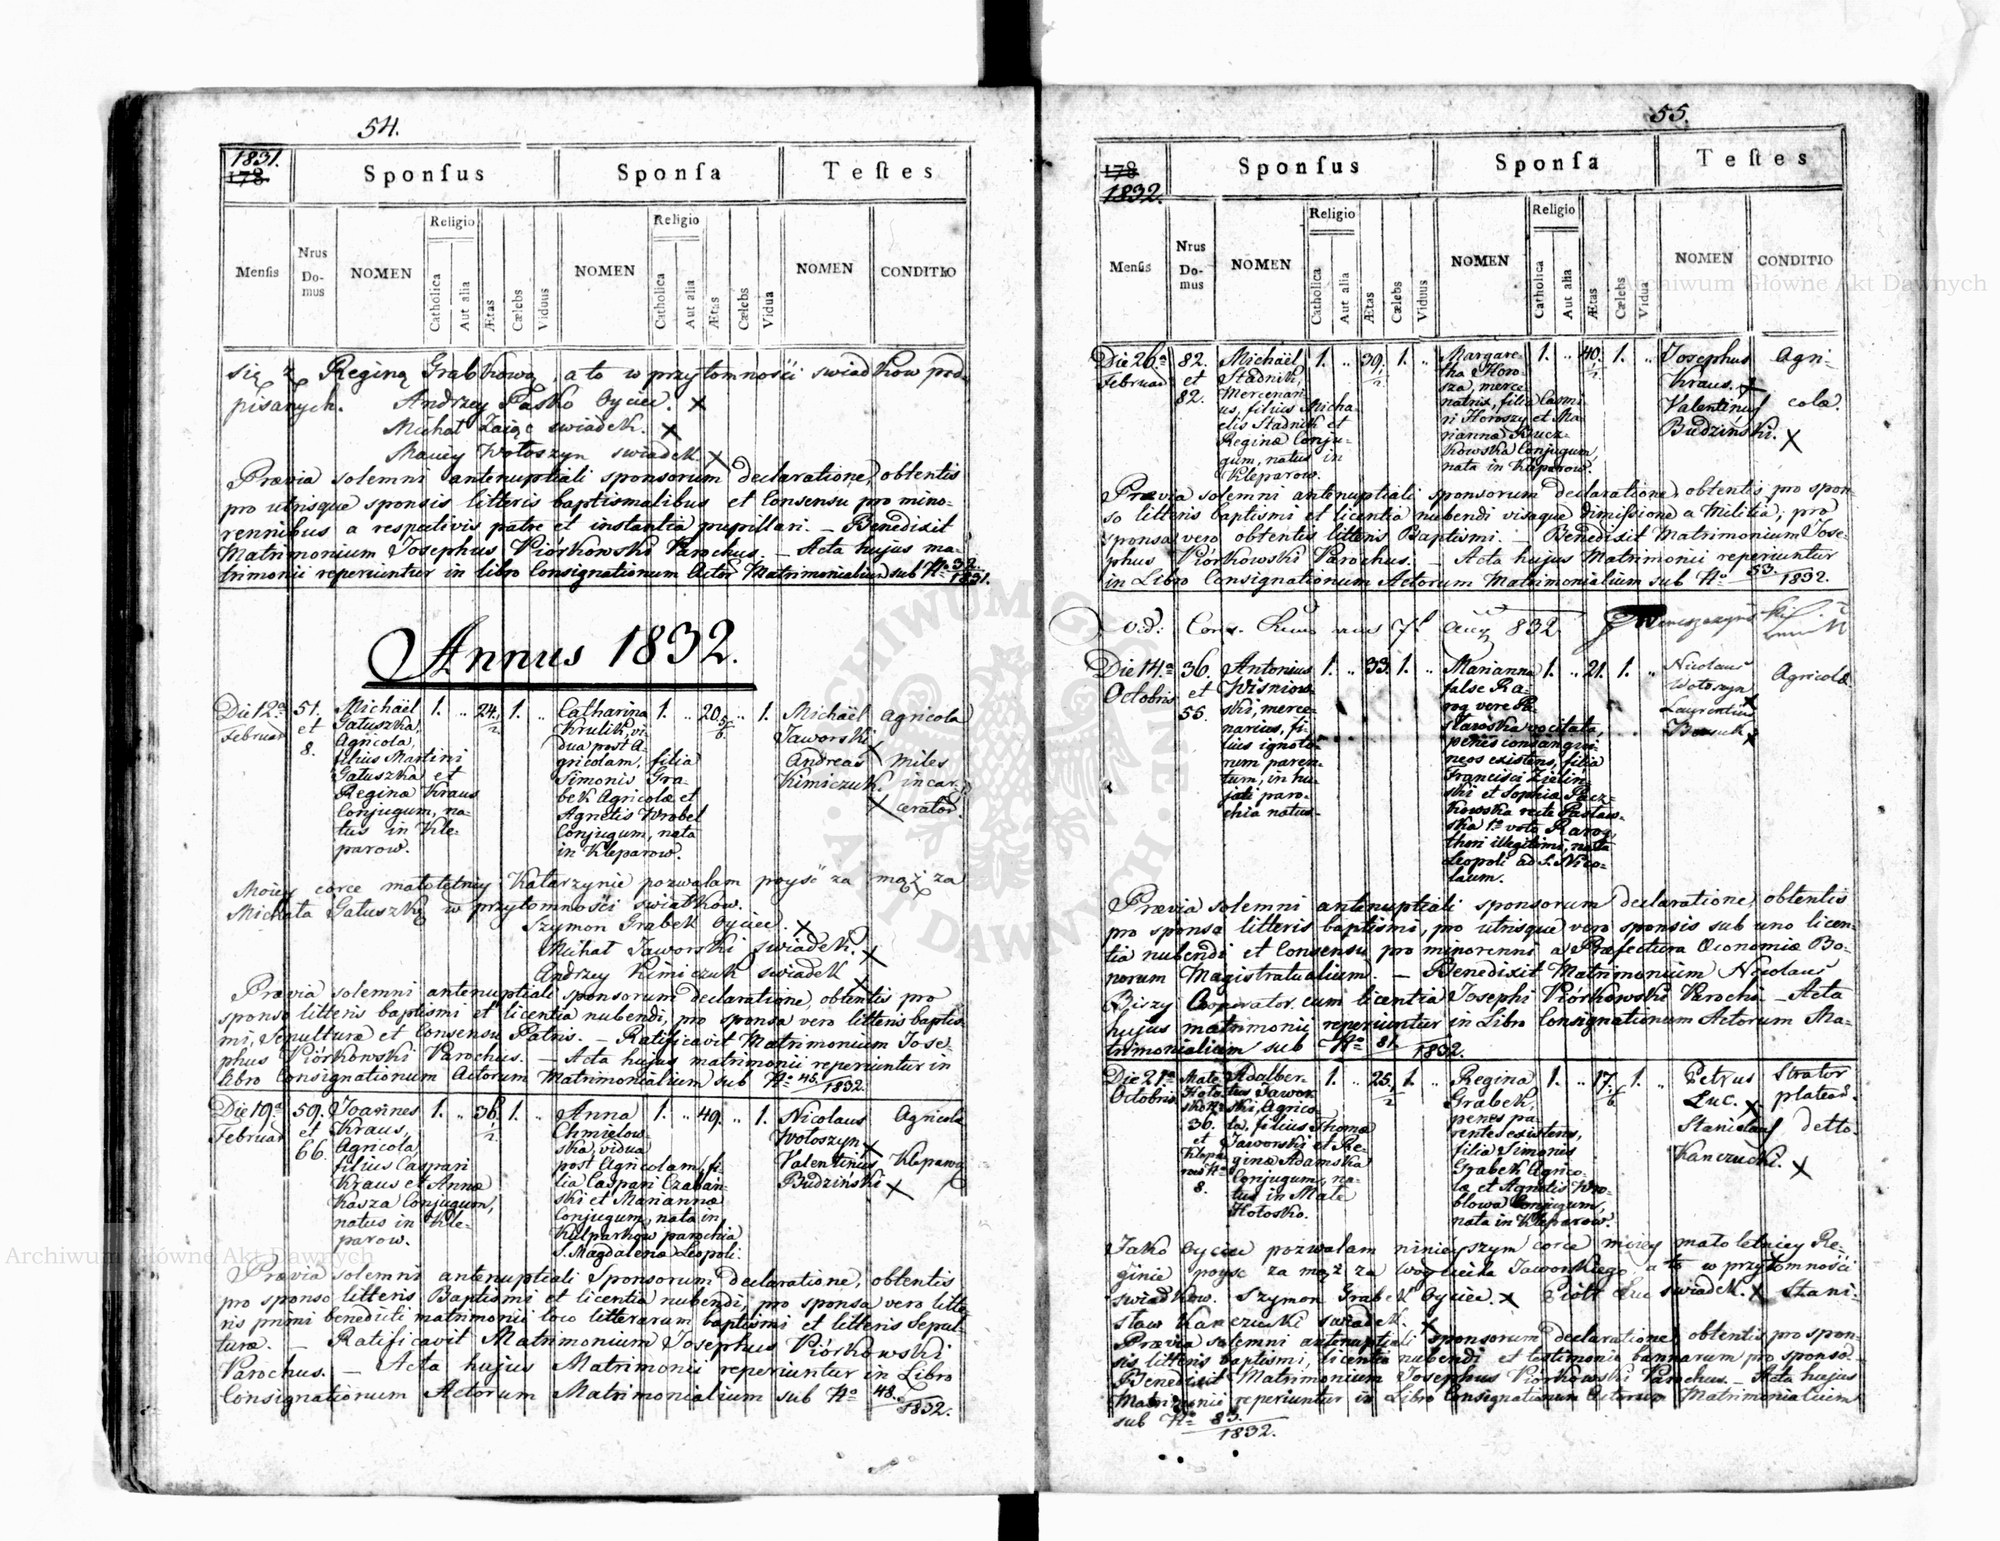 54.
1831.
178
Sponsus
Sponsa
Testes
Mensis
Nrus Domus
NOMEN
Religio
Catholica
Aut alia
Ætas
Cælebs
Viduus
NOMEN
Religio
Catholica
Aut alia
Ætas
Cælebs
Vidua
NOMEN
CONDITIO
się z Reginą Grabkową, a to w przytomności swiadkow pod-
pisanych. Andrzey Pasko Oyciec. X
Michał Zaiąc swiadek. X
Maciey Wołoszyn swiadek X
Prævia solemni antenuptiali sponsorum declaratione, obtentis
pro utrisque sponsis litteris baptismalibus et Consensu pro mino-
rennibus a respectivis patre et instantia pupillari. – Benedixit
Matrimonium Josephus Piórkowski Parochus. – Acta hujus ma-
trimonii reperiuntur in libro Consignationum Actor Matrimonialium sub No 32/1831.
Annus 1832.
Die 12a
Februar
51.
et
8.
Michaël
Gatuszka,
Agricola,
filius Martini
Gatuszka et
Reginæ Kraus
Conjugum, na-
tus in Kle-
parow.
1. „ 24 1/2 1. „
Catharina
Krulik, vi-
dua post A-
gricolam, filia
Simonis Gra-
bek Agricolæ et
Agnetis Wrobel
Conjugum, nata
in Kleparow.
1. „ 20 5/6 „ 1.
Michaël
Jaworski X
Andreas
Kimiczuk. X
Agricola
miles
incar-
cerator.
Moiey corce małoletniey Katarzynie pozwalam poyść za mąż za
Michała Gatuszkę w przytomności swiatkow.
Szymon Grabek Oyciec. X
Michał Jaworski swiadek. X
Andrzey Kimiczuk swiadek X
Prævia solemni antenuptiali sponsorum declaratione, obtentis pro
sponso litteris baptismi et licentia nubendi, pro sponsa vero litteris baptis-
mi, Sepulturæ et Consensu Patris. – Ratificavit Matrimonium Jose-
phus Piórkowski Parochus. – Acta hujus matrimonii reperiuntur in
libro Consignationum Actorum Matrimonialium sub No 45./1832.
Die 19a
Februar
59.
et
66.
Joannes
Kraus,
Agricola,
filius Caspari
Kraus et Annæ
Kasza Conjugum,
natus in Kle-
parow.
1. „ 36 1/2 1. „
Anna
Chmielow-
ska, vidua
post Agricolam, fi-
lia Caspari Czaban-
ski et Mariannæ
Conjugum, nata in
Kulparkow parochia
S. Magdalenæ Leopoli.
1. „ 49. „ 1.
Nicolaus
Wołoszyn X
Valentinus
Budziński X
Agricolæ
Kleparov
Prævia solemni antenuptiali Sponsorum declaratione, obtentis
pro sponso litteris Baptismi et licentia nubendi, pro sponsa vero litte-
ris primi benedicti matrimonii loco litterarum baptismi et litteris Sepul-
turæ. – Ratificavit Matrimonium Josephus Piórkowski
Parochus. – Acta hujus Matrimonii reperiuntur in Libro
Consignationum Actorum Matrimonialium sub No 48./1832.
55.
178
1832.
Sponsus
Sponsa
Testes
Mensis
Nrus Domus
NOMEN
Religio
Catholica
Aut alia
Ætas
Cælebs
Viduus
NOMEN
Religio
Catholica
Aut alia
Ætas
Cælebs
Vidua
NOMEN
CONDITIO
Die 26a
Februar
82.
et
82.
Michaël
Stadnik,
Mercenari-
us, filius Micha-
elis Stadnik et
Reginæ Conju-
gum, natus in
Kleparow.
1. „ 39 1/2 1. „
Margare-
tha Horo-
sza, merce-
natrix, filia Casimi-
ri Horoszy et Ma-
riannæ Krucz-
kowska Conjugum,
nata in Kleparow.
1. „ 40 1/2 1. „
Josephus
Kraus. X
Valentinus
Budzinski. X
Agri-
colæ.
Prævia solemni antenuptiali sponsorum declaratione, obtentis pro spon-
so litteris baptismi et licentia nubendi visaque dimissione a Militia, pro
sponsa vero obtentis litteris Baptismi. – Benedixit Matrimonium Jose-
phus Piórkowski Parochus. – Acta hujus Matrimonii reperiuntur
in Libro Consignationum Actorum Matrimonialium sub No 53./1832.
vid: 7 832
Die 14a
Octobris
36.
et
55.
Antonius
Wisniow-
ski, merce-
narius, fi-
lius ignoto-
rum paren-
tum, in hu-
jati paro-
chia natus.
1. „ 33. 1. „
Marianna
false Ra-
rog vere Pa-
stawska vocitata,
penes consangvi-
neos existens, filia
Francisci Zielin-
ski et Sophiæ Pacz-
kowska recte Pastaw-
ska 1o voto Rarog
thori illegitimi, nata
Leopoli ad S. Nico-
laum.
1. „ 21. 1. „
Nicolaus
Wołoszyn X
Laurentius
X
Agricolæ
Prævia solemni antenuptiali sponsorum declaratione, obtentis
pro sponsa litteris baptismi, pro utrisque vero sponsis sub uno licen-
tia nubendi et Consensu pro minorenni a Præfectura Oeconomiæ Bo-
norum Magistratualium. – Benedixit Matrimonium Nicolaus
Birzy Cooperator cum licentia Josephi Piórkowski Parochi – Acta
hujus matrimonii reperiuntur in Libro Consignationum Actorum Ma-
trimonialium sub No 81./1832.
Die 21a
Octobris
Małe
Hołosko No
36.
et
Klepa-
row No
8.
Adalber-
tus Jawor-
ski, Agrico-
la, filius Thomæ
Jaworski et Re-
ginæ Adamska
Conjugum, na-
tus in Małe
Hołosko.
1. „ 25 1/2 1. „
Regina
Grabek,
penes pa-
rentes existens,
filia Simonis
Grabek Agrico-
læ et Agnetis Wro-
blowa Conjugum,
nata in Kleparow.
1. „ 17 1/6 1. „
Petrus
Luc. X
Stanislaus
Kanczucki. X
Strator
platear.
detto.
Jako Oyciec pozwalam ninieyszym corce moiey małoletniey Re-
ginie poysc za mąż za Woyciecha Jaworskiego a to w przytomności
swiadkow. Szymon Grabek Oyciec. X Piotr Luc swiadek. X Stani-
sław Kanczucki swiadek. X
Prævia solemni antenuptiali sponsorum declaratione, obtentis pro spon-
sis litteris baptismi, licentia nubendi et testimonio bannorum pro sponso. –
Benedixit Matrimonium Josephus Piórkowski Parochus. – Acta hujus
Matrimonii reperiuntur in Libro Consignationum Actorum Matrimonialium
sub No 83./1832.
Archiwum Główne Akt Dawnych
Archiwum Główne Akt Dawnych
ARCHIWUM GŁÓWNE · AKT DAWNYCH ·